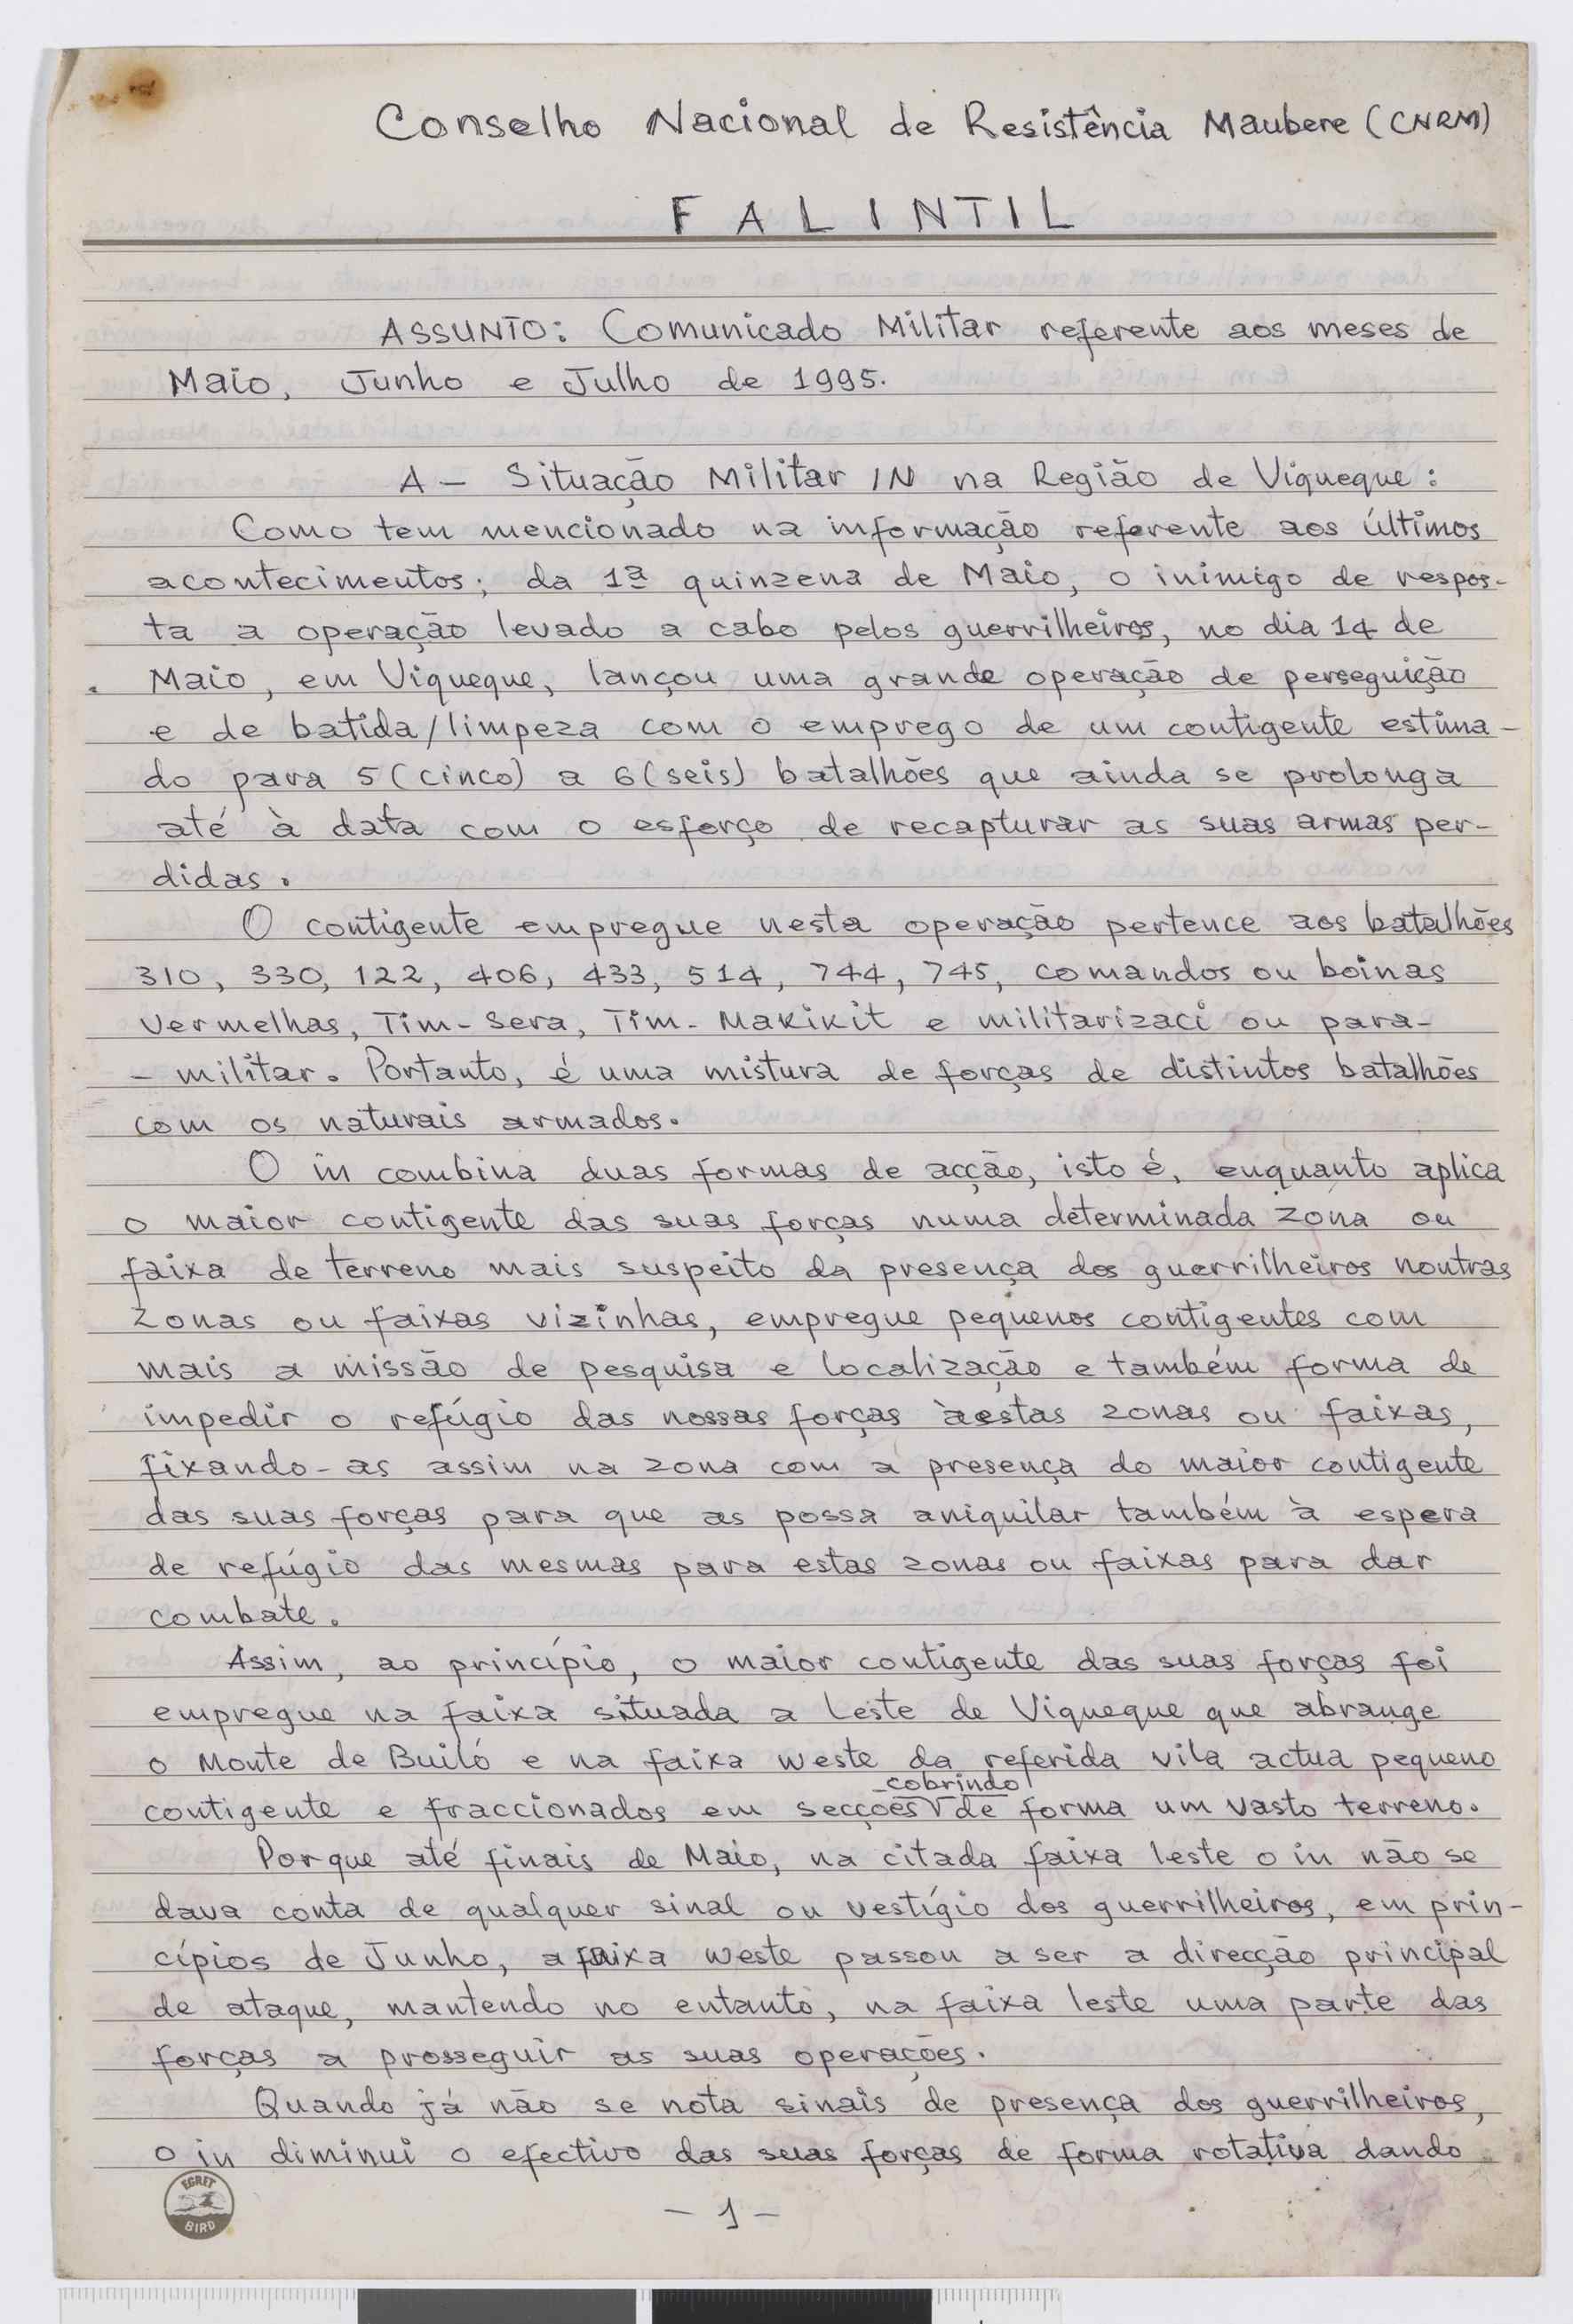 Conselho Nacional de Resistência Maubere (CNRM)
FALINTIL
ASSUNTO: Comunicado Militar referente aos meses de
Maio, Junho e Julho de 1995.
A - Situação Militar IN na Região de Viqueque:
Como tem mencionado na informação referente aos últimos
acontecimentos; da 1ª quinzena de Maio, o inimigo de respos-
ta a operação levado a cabo pelos guerrilheiros, no dia 14 de
Maio, em Viqueque, lançou uma grande operação de perseguição
e de batida/limpeza com o emprego de um contigente estima-
do para 5 (cinco) a 6 (seis) batalhões que ainda se prolonga
até à data com o esforço de recapturar as suas armas per-
didas.
O contigente empregue nesta operação pertence aos batalhões
310, 330, 122, 406, 433, 514, 744, 745, comandos ou boinas
vermelhas, Tim-Sera, Tim-Makikit e militarizaci ou para-
-militar. Portanto, é uma mistura de forças de distintos batalhões
com os naturais armados.
O in combina duas formas de acção, isto é, enquanto aplica
o maior contigente das suas forças numa determinada zona ou
faixa de terreno mais suspeito da presença dos guerrilheiros noutras
zonas ou faixas vizinhas, empregue pequenos contigentes com
mais a missão de pesquisa e localização e também forma de
impedir o refúgio das nossas forças àestas zonas ou faixas,
fixando-as assim na zona com a presença do maior contigente
das suas forças para que as possa aniquilar também à espera
de refúgio das mesmas para estas zonas ou faixas para dar
combate.
Assim, ao princípio, o maior contigente das suas forças foi
empregue na faixa situada a leste de Viqueque que abrange
o Monte de Builó e na faixa weste da referida vila actua pequeno
cobrindo
contigente e fraccionados em secções de forma um vasto terreno.
Porque até finais de Maio, na citada faixa leste o in não se
dava conta de qualquer sinal ou vestígio dos guerrilheiros, em prin-
cípios de Junho, a faixa weste passou a ser a direcção principal
de ataque, mantendo no entanto, na faixa leste uma parte das
forças a prosseguir as suas operações.
Quando já não se nota sinais de presença dos guerrilheiros,
o in diminui o efectivo das suas forças de forma rotativa dando
EGRET
BIRD
- 1 -